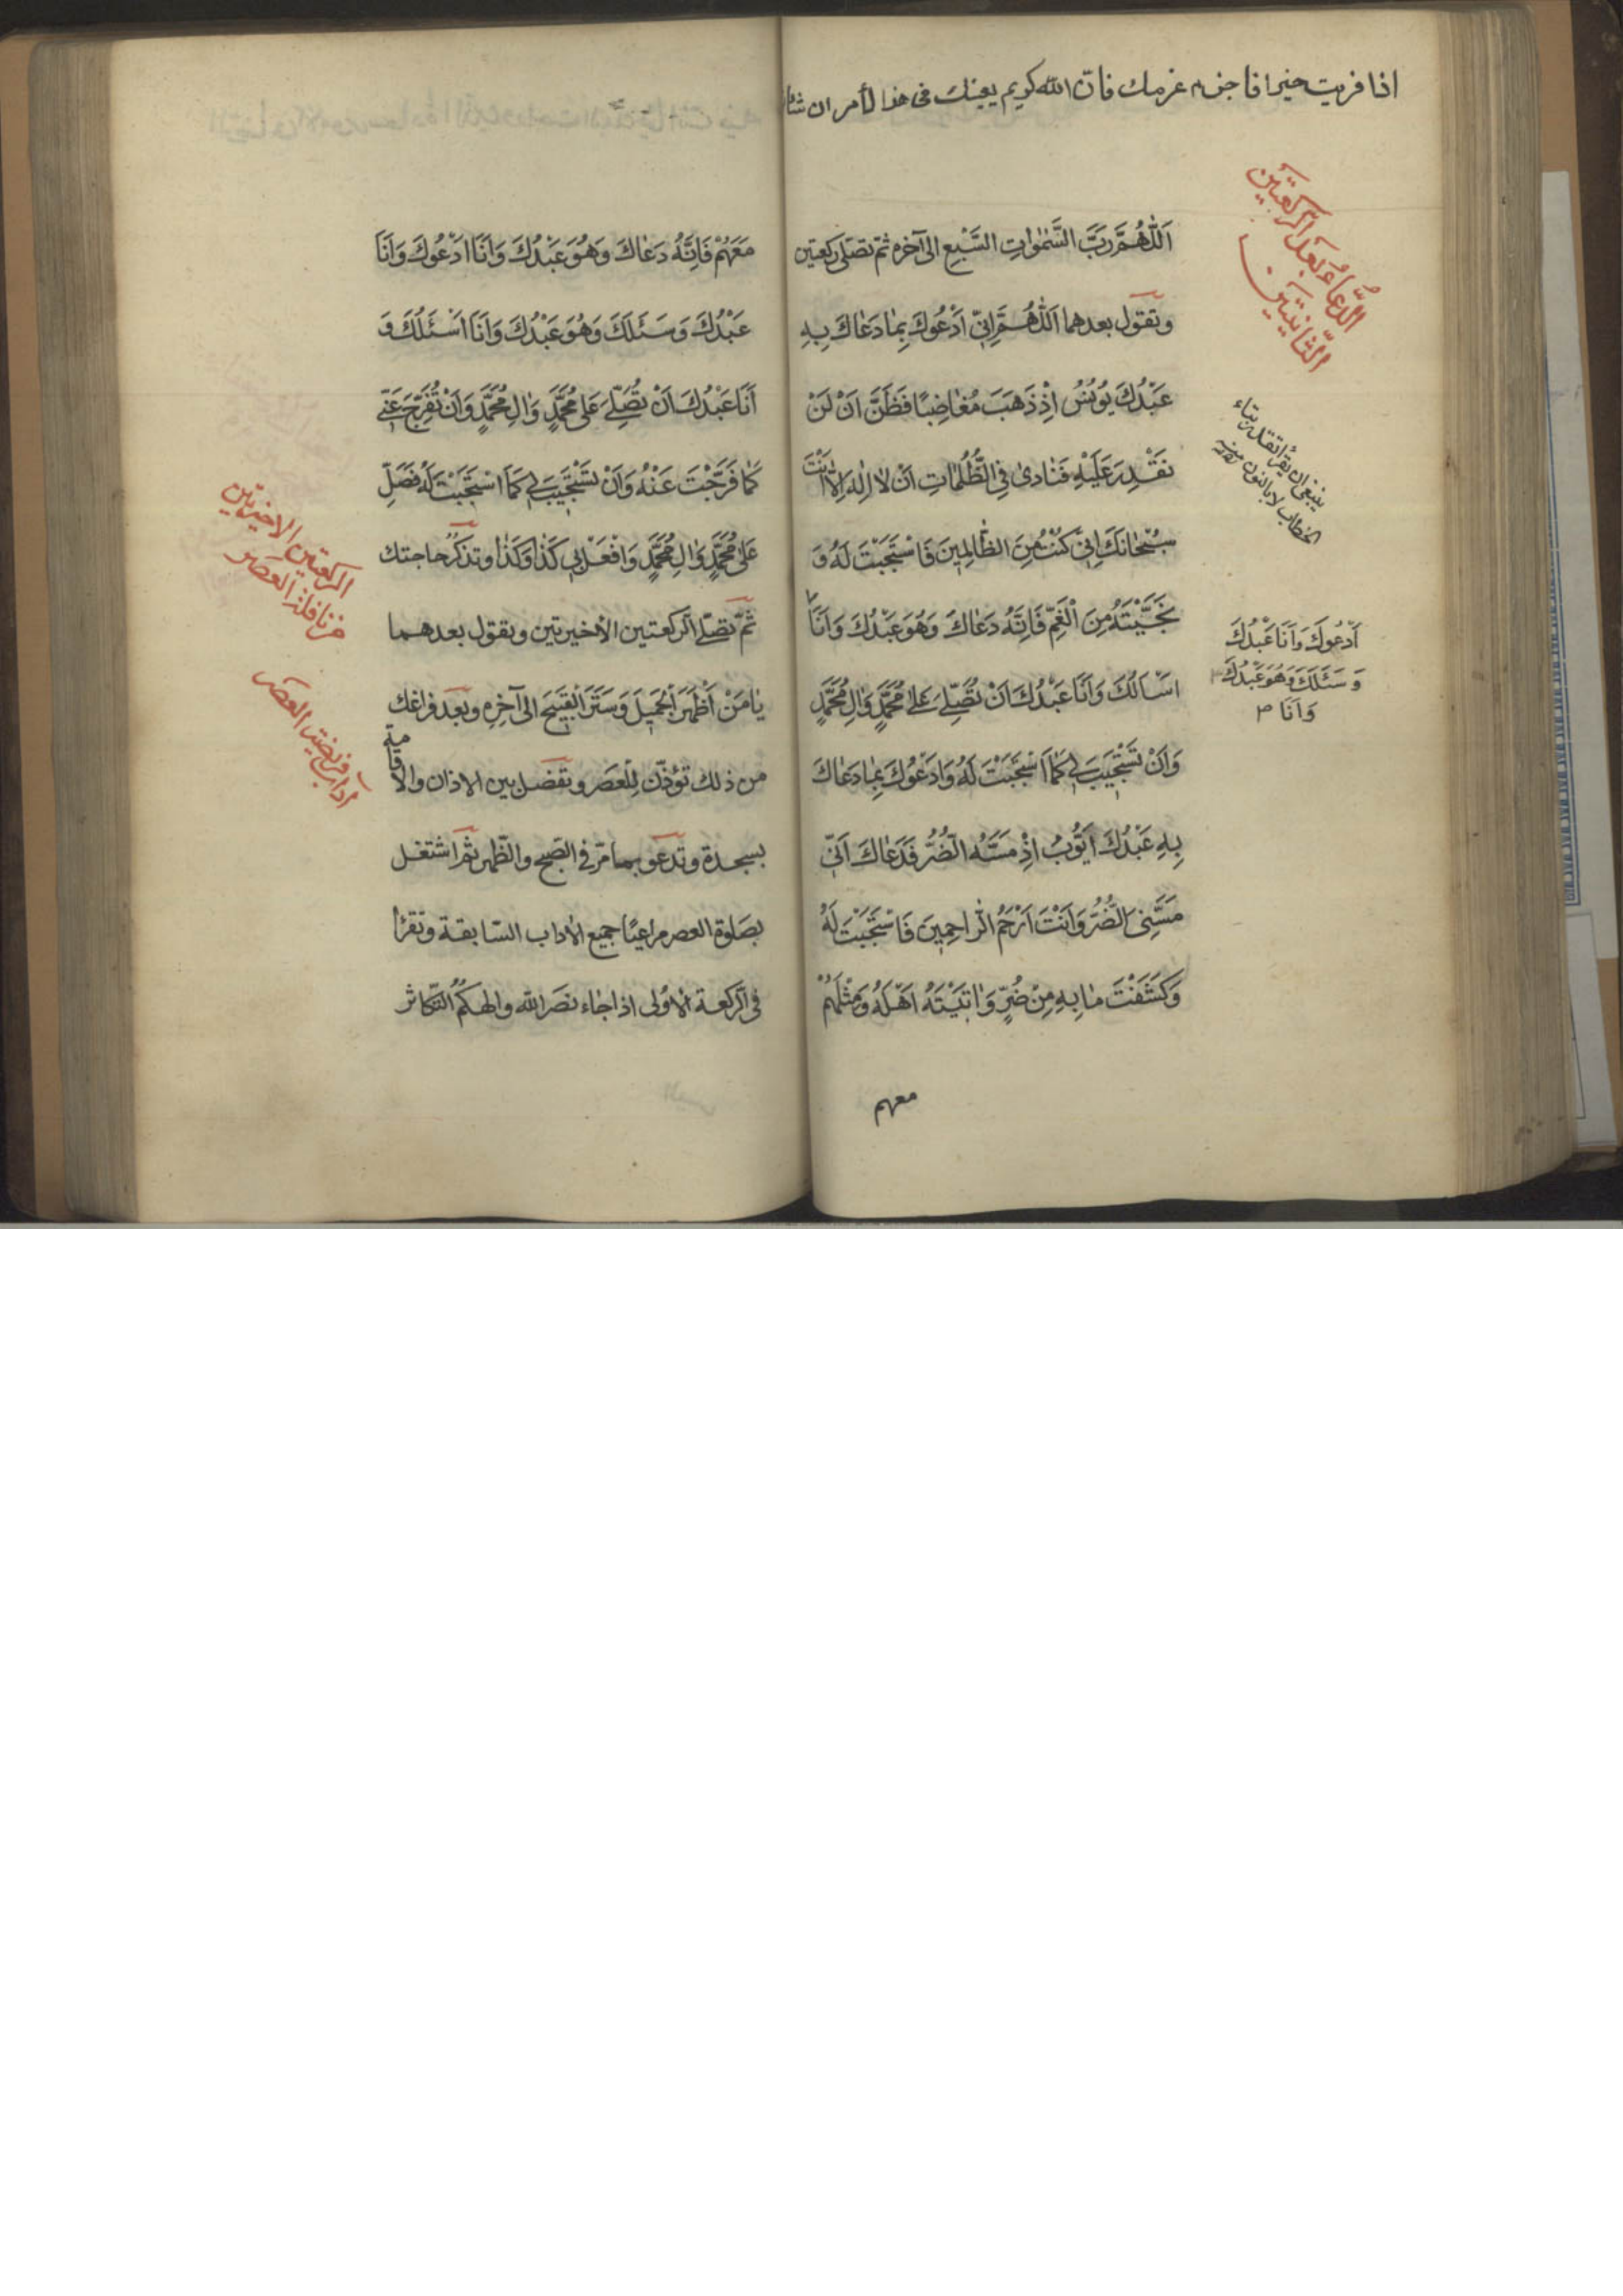 اذا فريت خيرا فا عزمك فان الله كريم يعينك فى هذا لأمر ان
الدُّعاءُ بَعدَ الرَّكعَتَين
الثّانِيَتَين
اَللّٰهُمَّ رَبَّ السَّمٰوَاتِ السَّبْعِ الى آخره ثمّ تصلّى ركعتين
وتقول بعدهما اَللّٰهُمَّ اِنّى اَدْعُوكَ بِمٰا دَعٰاكَ بِهِ
عَبْدُكَ يُونُسُ اِذْ ذَهَبَ مُغٰاضِبًا فَظَنَّ اَنْ لَنْ
نَقْدِرَ عَلَيْهِ فَنٰادىٰ فِى الظُّلُمٰاتِ اَنْ لٰا اِلٰهَ اِلّٰا اَنْتَ
سُبْحٰانَكَ اِنّى كُنْتُ مِنَ الظّٰالِمِينَ فَاسْتَجَبْتَ لَهُ وَ
نَجَّيْتَهُ مِنَ الْغَمِّ فَاِنَّهُ دَعٰاكَ وَهُوَ عَبْدُكَ وَاَنَا
اَسْاَلُكَ وَاَنَا عَبْدُكَ اَنْ تُصَلِّىَ عَلىٰ مُحَمَّدٍ وَاٰلِ مُحَمَّدٍ
وَاَنْ تَسْتَجِيبَ لى كَمَا اسْتَجَبْتَ لَهُ وَاَدْعُوكَ بِمٰا دَعٰاكَ
بِهِ عَبْدُكَ اَيُّوبُ اِذْ مَسَّهُ الضُّرُّ فَدَعٰاكَ اَنّى
مَسَّنِىَ الضُّرُّ وَاَنْتَ اَرْحَمُ الرّٰاحِمِينَ فَاسْتَجَبْتَ لَهُ
وَكَشَفْتَ مٰا بِهِ مِنْ ضُرٍّ وَاٰتَيْتَهُ اَهْلَهُ وَمِثْلَهُمْ
معهم
ينبغى ان يقرأ تقدر بتاء
الخطاب لا بالنون
اَدْعُوكَ وَاَنَا عَبْدُكَ
وَسَئَلَكَ وَهُوَ عَبْدُكَ
وَاَنَا
مَعَهُمْ فَاِنَّهُ دَعٰاكَ وَهُوَ عَبْدُكَ وَاَنَا اَدْعُوكَ وَاَنَا
عَبْدُكَ وَسَئَلَكَ وَهُوَ عَبْدُكَ وَاَنَا اَسْئَلُكَ وَ
اَنَا عَبْدُكَ اَنْ تُصَلِّىَ عَلىٰ مُحَمَّدٍ وَاٰلِ مُحَمَّدٍ وَاَنْ تُفَرِّجَ عَنّى
كَمٰا فَرَّجْتَ عَنْهُ وَاَنْ تَسْتَجِيبَ لى كَمَا اسْتَجَبْتَ لَهُ فَصَلِّ
عَلىٰ مُحَمَّدٍ وَاٰلِ مُحَمَّدٍ وَافْعَلْ بى كَذٰا وَكَذٰا وتذكر حاجتك
ثمّ تصلّى الركعتين الأخيرتين وتقول بعدهما
يٰا مَنْ اَظْهَرَ الْجَمِيلَ وَسَتَرَ الْقَبِيحَ الى آخِرِهِ وبعد فراغك
من ذلك تؤذّن لِلْعَصر وتفصل بين الاذان والاقامة
بسجدة وتدعو بما مرّ فى الصّبح والظّهر ثمّ اشتغل
بصلوة العصر مراعيًا جميع الآداب السّابقة وتقرأ
فى الرّكعة الأولى اذا جاء نصر الله والهٰكم التّكاثر
الركعتين الاخيرتين
من نافلة العصر
آداب فريضة العصر